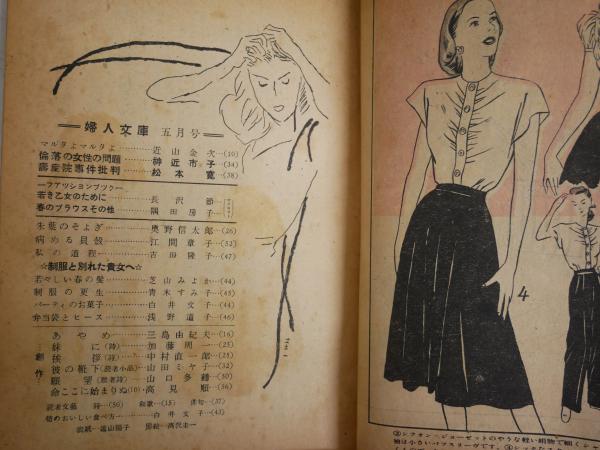 婦人文庫 五月号
マルタよマルタよ……近山金次…(10)
倫落の女性の問題……神近市子…(34)
壽産院事件批判……松本寛…(38)
―フアツションブツク―
若き乙女のために……長沢節
春のブラウスその他……隅田房子
朱葉のそよぎ……奥野信太郎…(26)
病める貝殻……江間章子…(52)
私の道程……吉田隆子…(47)
☆制服と別れた貴女へ☆
若々しい春の髪……芝山みよか…(44)
制服の更生……青木すみ子…(45)
パーティのお菓子……白井文子…(44)
弁当袋とヒース……浅野道子…(46)
創作
あやめ……三島由紀夫…(16)
妹に(詩)……加藤周一…(25)
挨拶(詩)……中村直一郎…(25)
彼の靴下(読者小品)…山田ミヤ子…(32)
願望(読者詩)……山口多鶴…(50)
命ここに始まりぬ(10)…高見順…(56)
読者文藝 詩…(50) 和歌…(15) 俳句…(37)
始めおいしい食べ方……白井文子…(43)
表紙…遠山陽子 扉絵…高沢圭一
4
②シフオン・ジョーゼットのやうな軽い絹物で細く
袖は小さいパフスリーヴです。